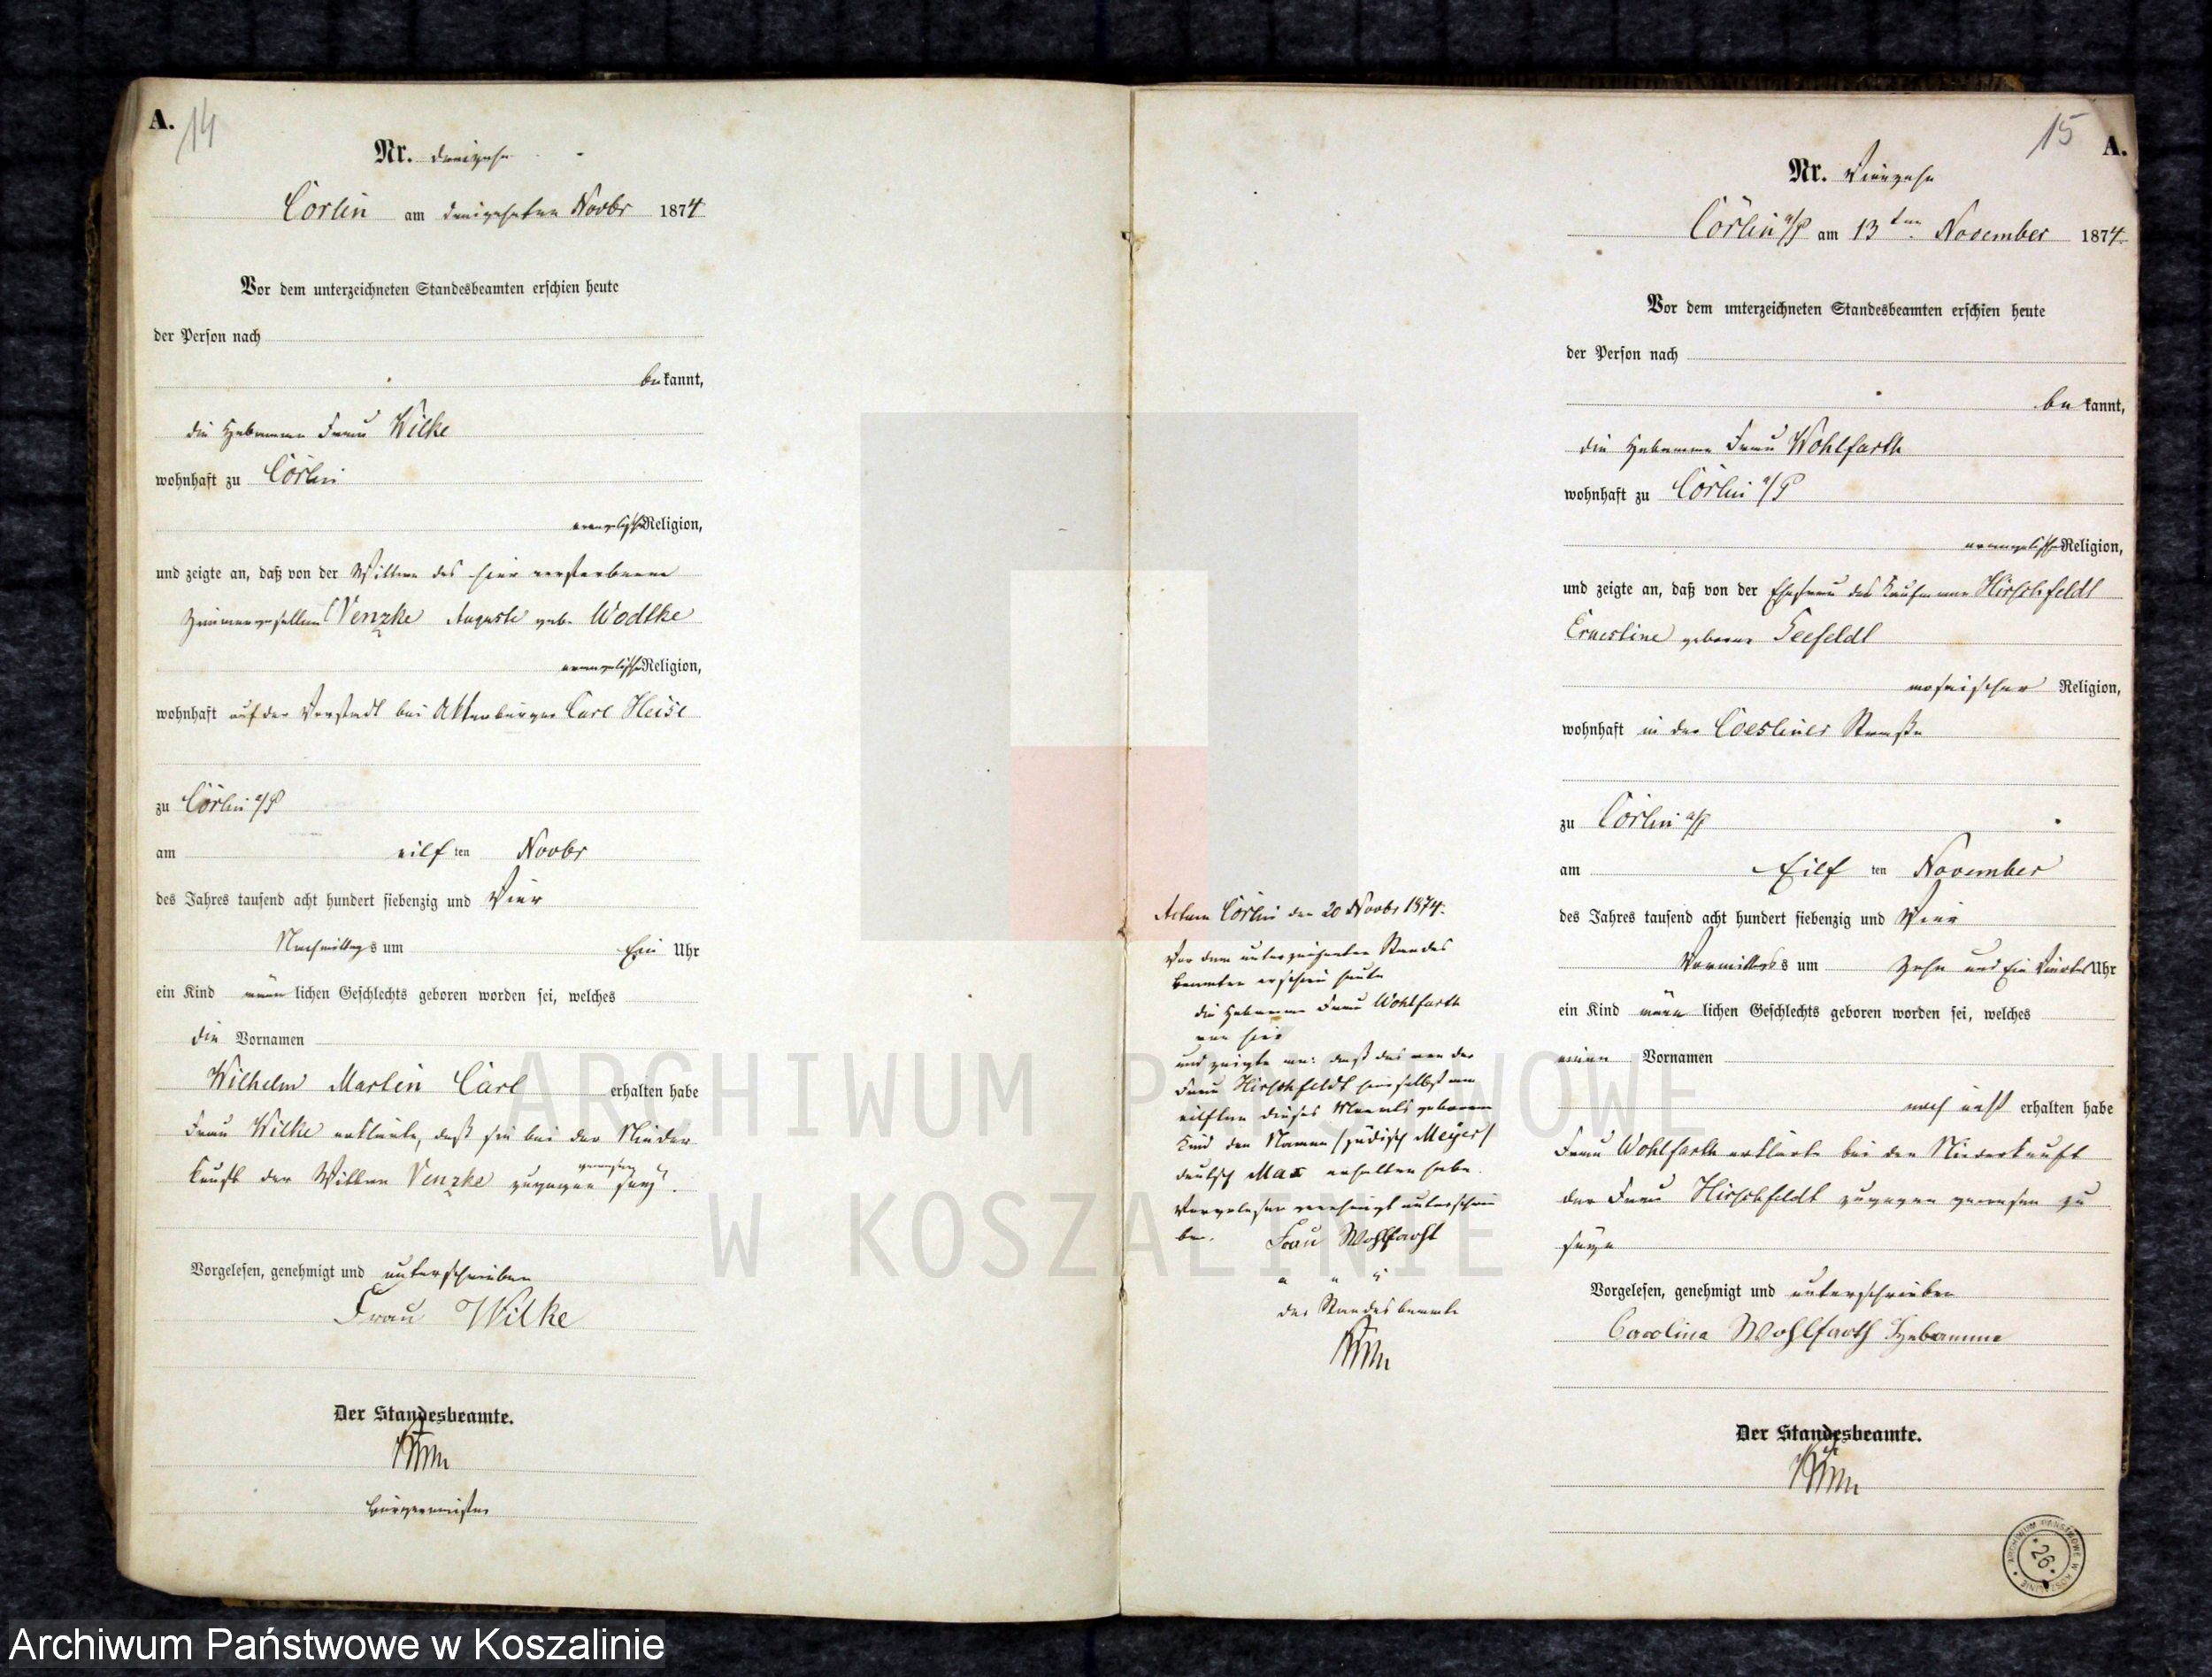 A.
14
Nr. dreizehn
Cörlin am dreizehnten Novbr 1874
Vor dem unterzeichneten Standesbeamten erschien heute
der Person nach
bekannt,
die Hebamme Frau Wilke
wohnhaft zu Cörlin
evangelischer Religion,
und zeigte an, daß von der Wittwe des hier verstorbenen
Zimmergesellen Venzke Auguste geb. Wodtke
evangelischer Religion,
wohnhaft auf der Vorstadt bei Ackerbürger Carl Heise
zu Cörlin a/P
am eilften Novbr
des Jahres tausend acht hundert siebenzig und Vier
Nachmittags um Ein Uhr
ein Kind männlichen Geschlechts geboren worden sei, welches
die Vornamen
Wilhelm Martin Carl erhalten habe
Frau Wilke erklärte, daß sie bei der Nieder
kunft der Wittwe Venzke zugegen gewesen sey.
Vorgelesen, genehmigt und unterschrieben
Frau Wilke
Der Standesbeamte.
Bürgermeister
15
A.
Nr. Vierzehn
Cörlin a/P am 13ten November 1874.
Vor dem unterzeichneten Standesbeamten erschien heute
der Person nach
bekannt,
die Hebamme Frau Wohlfarth
wohnhaft zu Cörlin a/P
evangelischer Religion,
und zeigte an, daß von der Ehefrau des Kaufmann Hirschfeldt
Ernestine geborne Seefeldt
mosaischer Religion,
wohnhaft in der Coesliner Straße
zu Cörlin a/P
am Eilften November
des Jahres tausend acht hundert siebenzig und Vier
Vormittags um Zehn und Ein Viertel Uhr
ein Kind männlichen Geschlechts geboren worden sei, welches
einen Vornamen
noch nicht erhalten habe
Frau Wohlfarth erklärte bei der Niederkunft
der Frau Hirschfeldt zugegen gewesen zu
seyn
Vorgelesen, genehmigt und unterschrieben
Carolina Wohlfarth Hebamme
Der Standesbeamte.
Actum Cörlin den 20 Novbr 1874.
Vor dem unterzeichneten Standes
beamten erschien heute
die Hebamme Frau Wohlfarth
von hier
und zeigte an: daß das von der
Frau Hirschfeldt hierselbst am
eilften dieses Monats geborene
Kind den Namen /jüdisch Meyer/
deutsch Max erhalten habe.
Vorgelesen genehmigt unterschrie
ben. Frau Wohlfarht
a u s
der Standesbeamte
ARCHIWUM PAŃSTWOWE
W KOSZALINIE
ARCHIWUM PAŃSTWOWE W KOSZALINIE
26
Archiwum Państwowe w Koszalinie